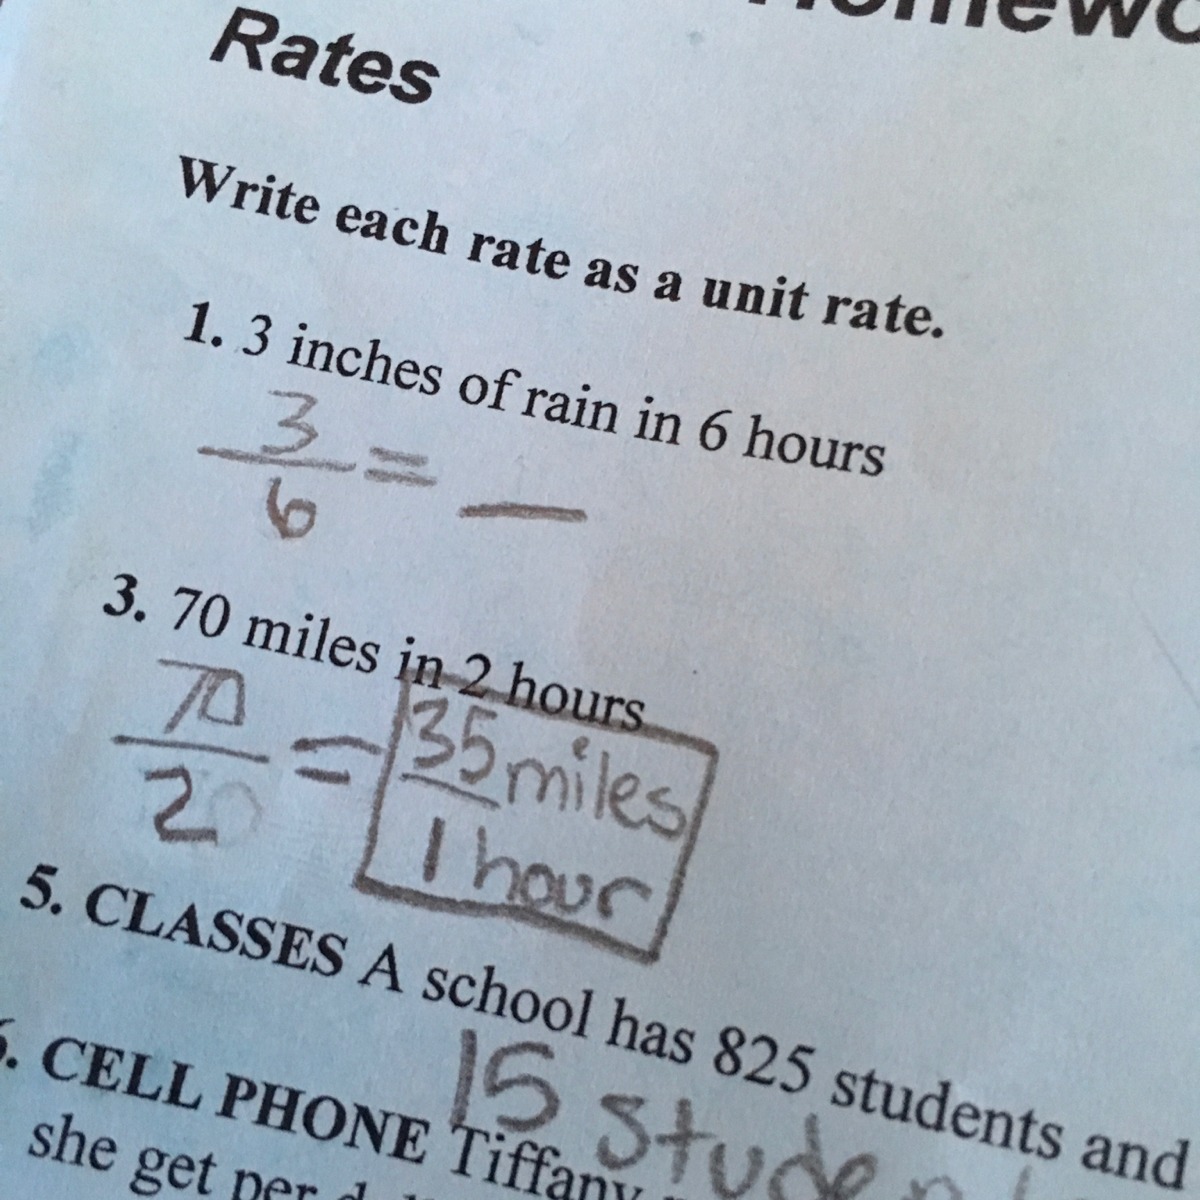 Rates
Write each rate as a unit rate.
1. 3 inches of rain in 6 hours
3/6 = _
3. 70 miles in 2 hours
70/2 = 35 miles/1 hour
5. CLASSES A school has 825 students and
15
. CELL PHONE Tiffany
she get per